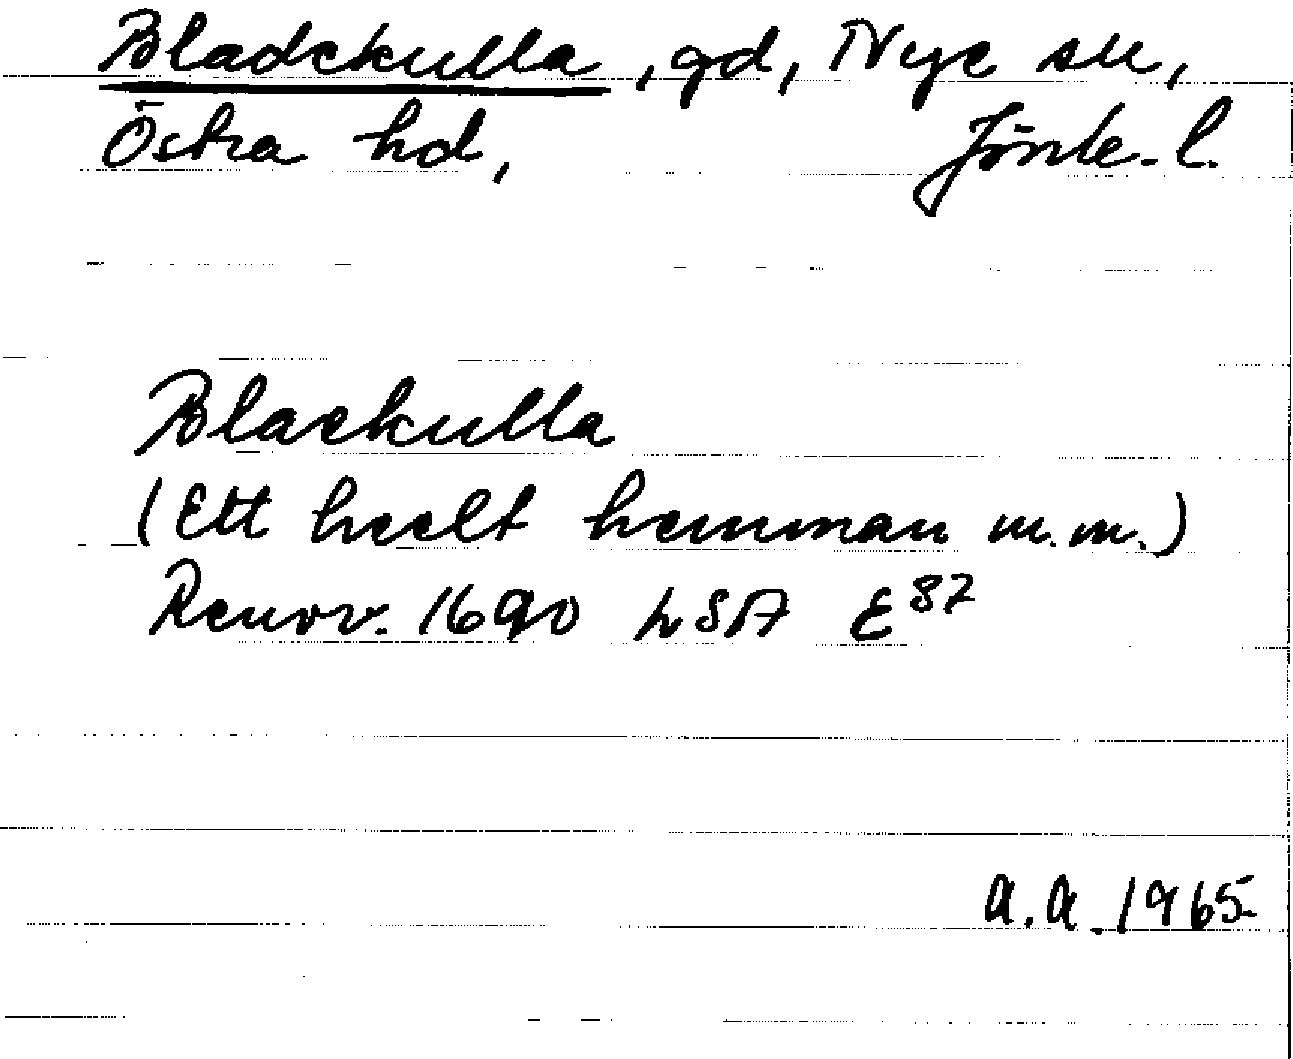 Bladekulla, gd, Nye sn,
Östra hd, Jönk. l.
Blaekulla
(Ett heelt hemman m.m.)
Renov. 1690 LSA E 87
A.A. 1965